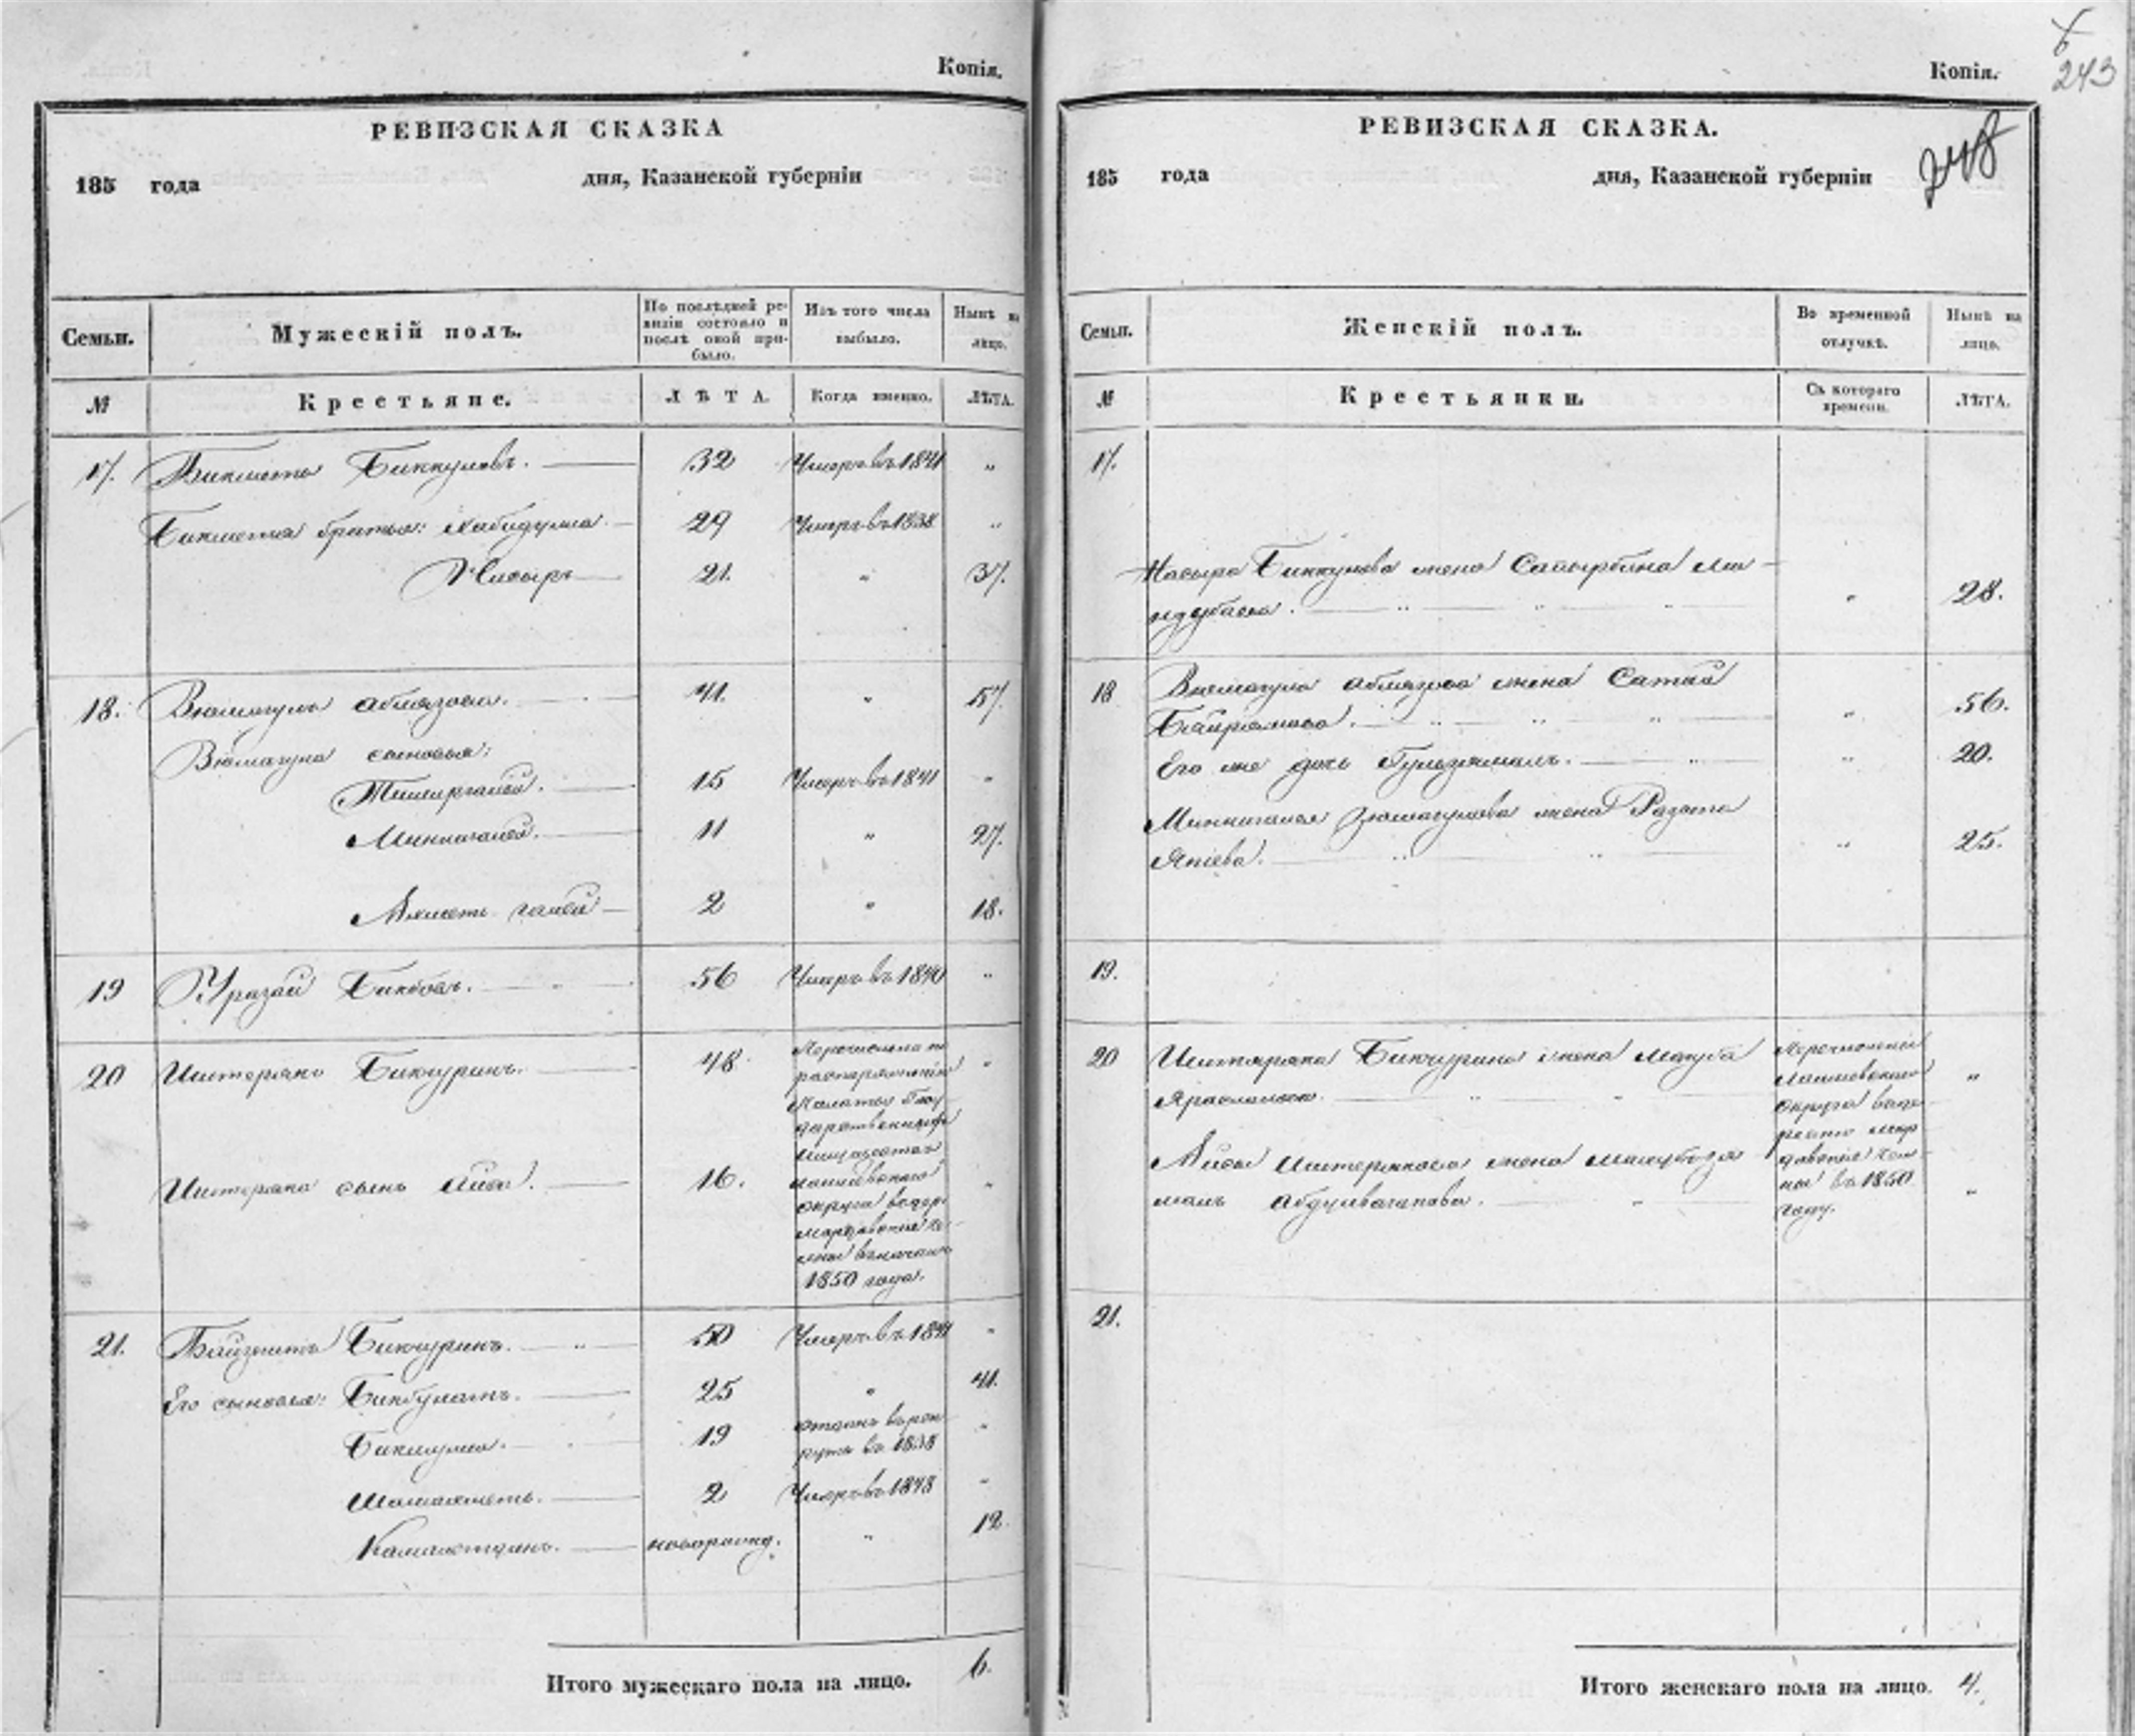 Копія.
РЕВИЗСКАЯ СКАЗКА
185 года дня, Казанской губерніи
Семьи. Мужескій полъ. По послѣдней ре-
визіи состояло и
послѣ оной при-
было. Изъ того числа
выбыло. Нынѣ на
лицо.
№ Крестьяне. ЛѢТА. Когда именно. ЛѢТА.
17. Бикмета Биккуловъ. 32 Умеръ въ 1841 „
Бикметя братья: Хабидулла 29 Умеръ въ 1838 „
Насыръ 21. „ 37.
18. Зюмагулъ Аблязовъ. 41. „ 57.
Зюмагула сыновья:
15 Умеръ въ 1841 „
Миннигалей. 11 „ 27.
галей 2 „ 18.
19 Уразай Бикбовъ. 56 Умеръ въ 1840 „
20 Иштерякъ Бикчуринъ. 48. Перечислены по
распоряженію
Палаты Госу-
дарственныхъ
имуществъ
Лаишевскаго
округа
1850 года. „
Иштеряка сынъ Айса. 16. „
21. Байзитъ Бикчуринъ. 50 Умеръ въ 1841 „
Его сыновья: Бикбулатъ. 25 „ 41.
Биккулла. 19 отданъ въ рек-
руты въ 1838 „
Шамаметь. 2 Умеръ въ 1848 „
Камалютдинъ. новорожд. „ 12.
Итого мужескаго пола на лицо. 6.
Копія.
243
248
РЕВИЗСКАЯ СКАЗКА.
185 года дня, Казанской губерніи
Семьи. Женскій полъ. Во временной
отлучкѣ. Нынѣ на
лицо.
№ Крестьянки. Съ котораго
времени. ЛѢТА.
17.
Насыра Биккулова жена
„ 28.
18 Зюмагула Аблязова жена
Байрамова. „ 56.
Его же дочь Гульзямалъ. „ 20.
Миннигалея Зюмагулова жена
Япіева. „ 25.
19.
20 Иштеряка Бикчурина жена Перечислены
Лаишевскаго
округа
въ 1850
году. „
Айсы Иштерякова жена
малъ Абдулвагапова. „
21.
Итого женскаго пола на лицо. 4.